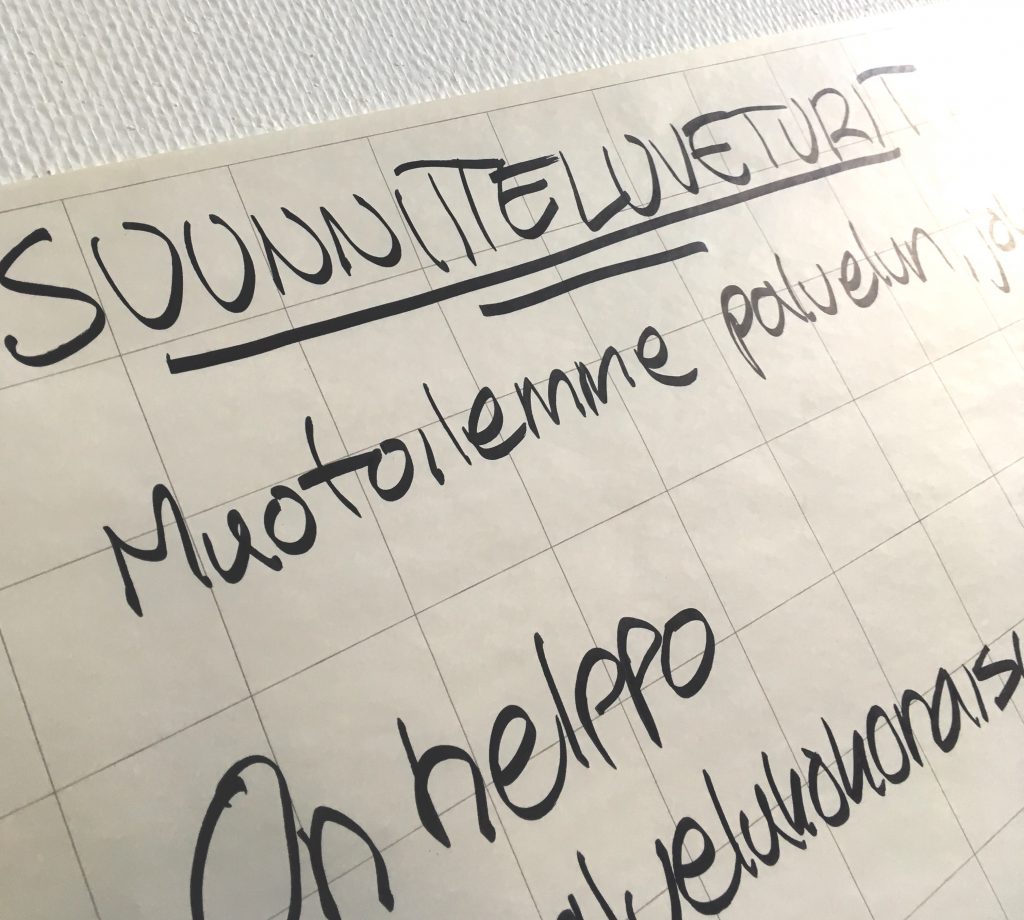 SUUNNITTELUVETURIT
Muotoilemme palvelun, ja
On helppo
alvelukokonaisu